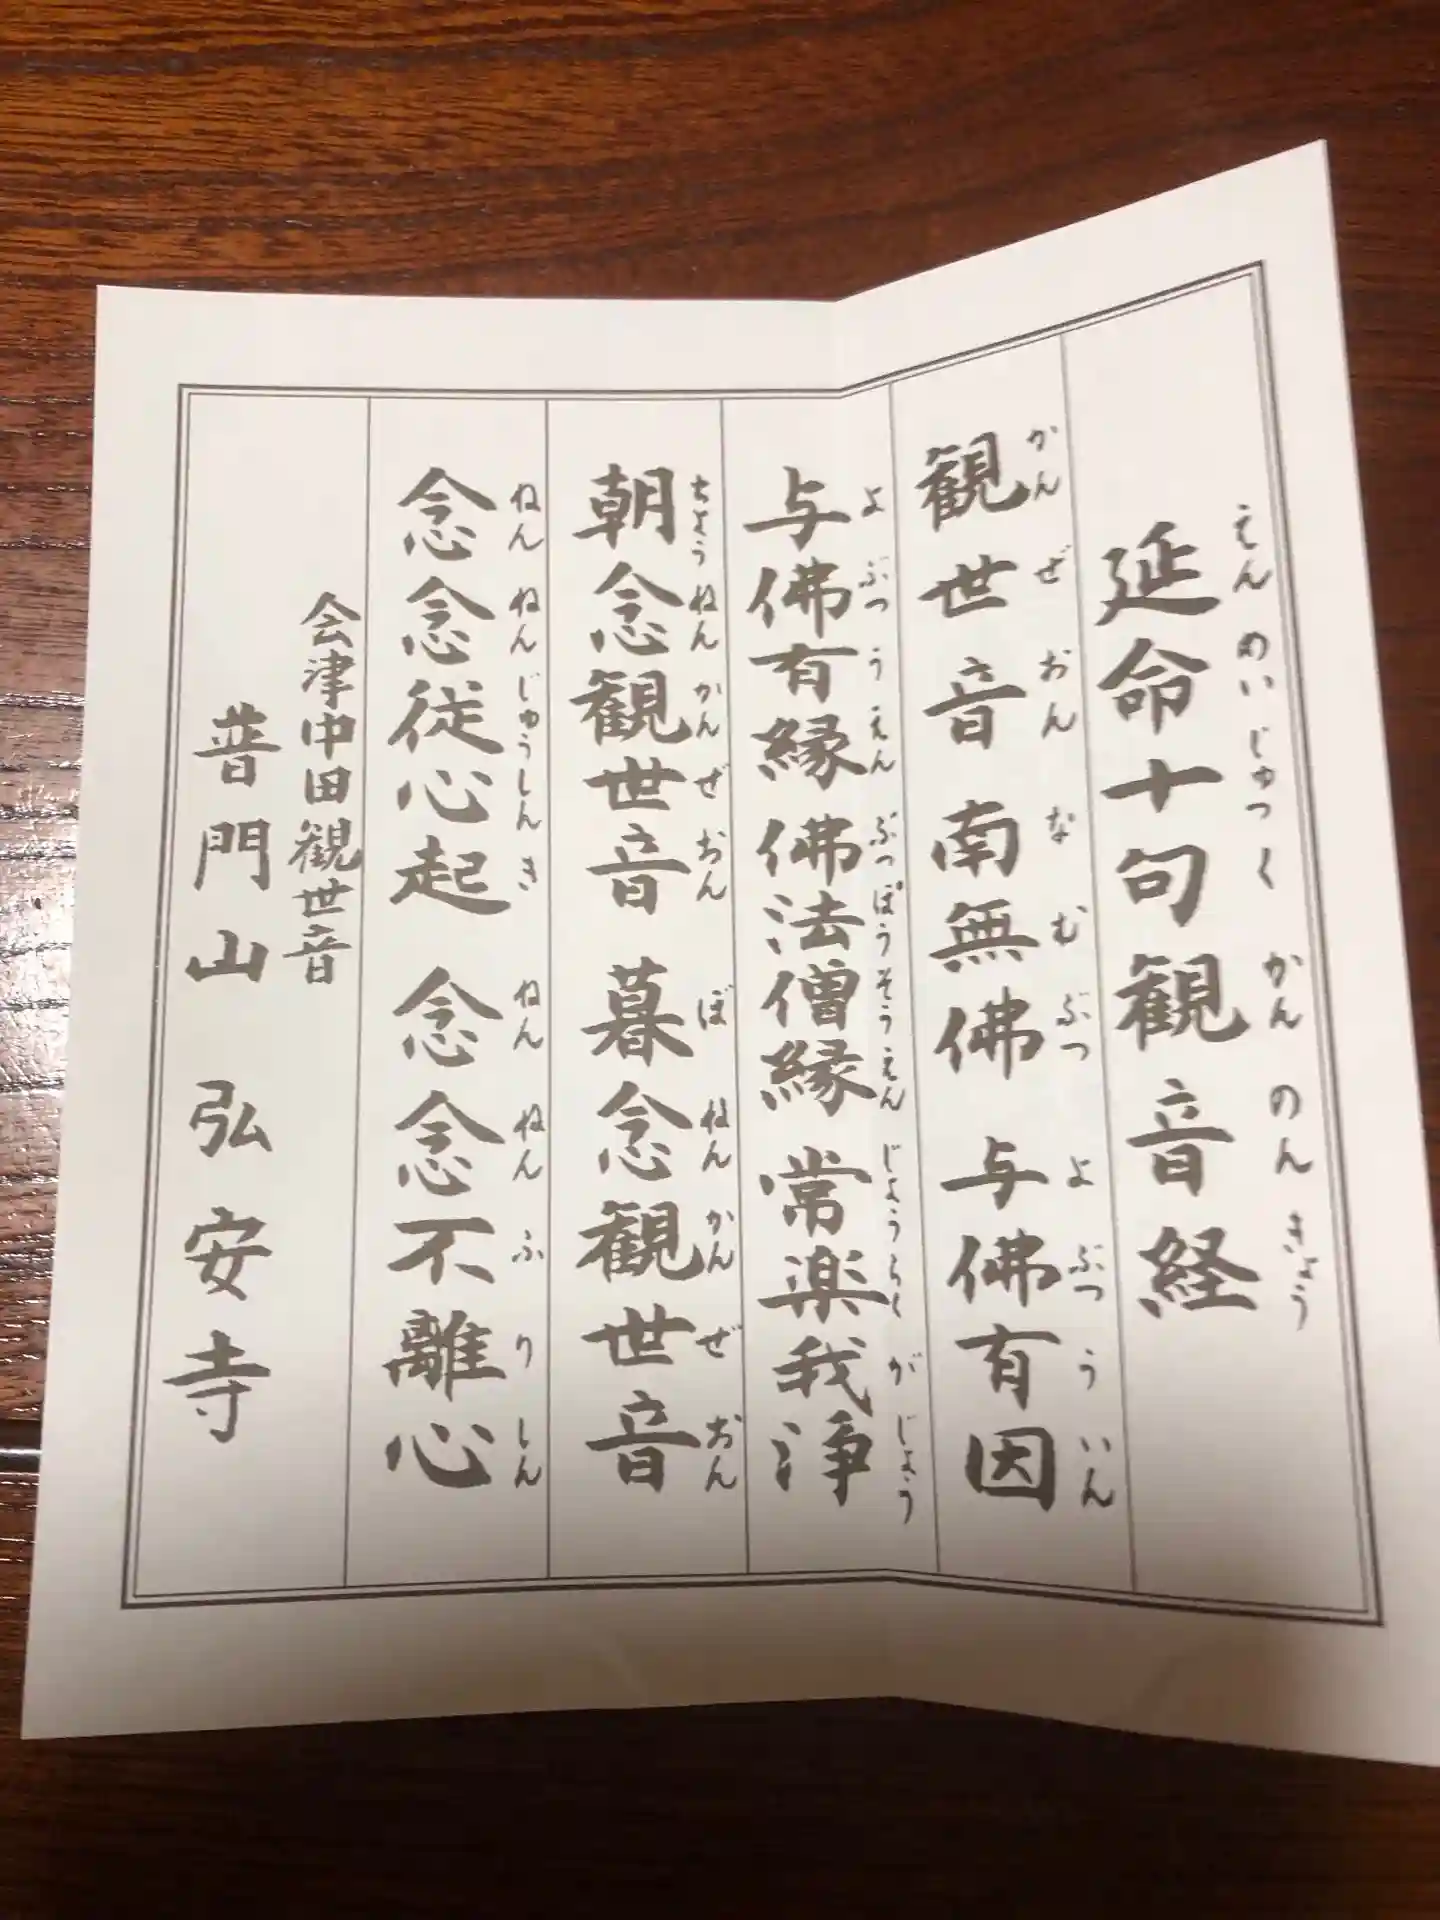 延命十句観音経
えんめいじゅっくかんのんきょう
観世音南無佛 与佛有因
かんぜおんなむぶつ よぶつういん
与佛有縁 佛法僧縁 常楽我浄
よぶつうえん ぶっぽうそうえん じょうらくがじょう
朝念観世音 暮念観世音
ちょうねんかんぜおん ぼねんかんぜおん
念念従心起 念念不離心
ねんねんじゅうしんき ねんねんふりしん
会津中田観世音
普門山 弘安寺